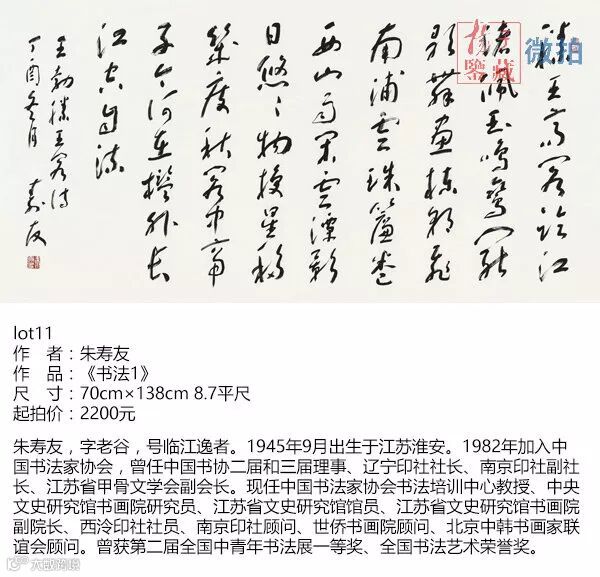 滕王高閣临江
渚佩玉鳴鸾罷
歌舞画棟朝飛
南浦雲珠簾卷
西山雨閑雲潭影
日悠〻物换星移
幾度秋閣中帝
子今何在檻外長
江空自流
王勃滕王閣诗
丁酉冬月 寿友
鑒藏
微拍
lot11
作 者：朱寿友
作 品：《书法1》
尺 寸：70cm×138cm 8.7平尺
起拍价：2200元
朱寿友，字老谷，号临江逸者。1945年9月出生于江苏淮安。1982年加入中
国书法家协会，曾任中国书协二届和三届理事、辽宁印社社长、南京印社副社
长、江苏省甲骨文学会副会长。现任中国书法家协会书法培训中心教授、中央
文史研究馆书画院研究员、江苏省文史研究馆馆员、江苏省文史研究馆书画院
副院长、西泠印社社员、南京印社顾问、世侨书画院顾问、北京中韩书画家联
谊会顾问。曾获第二届全国中青年书法展一等奖、全国书法艺术荣誉奖。
大成跨境